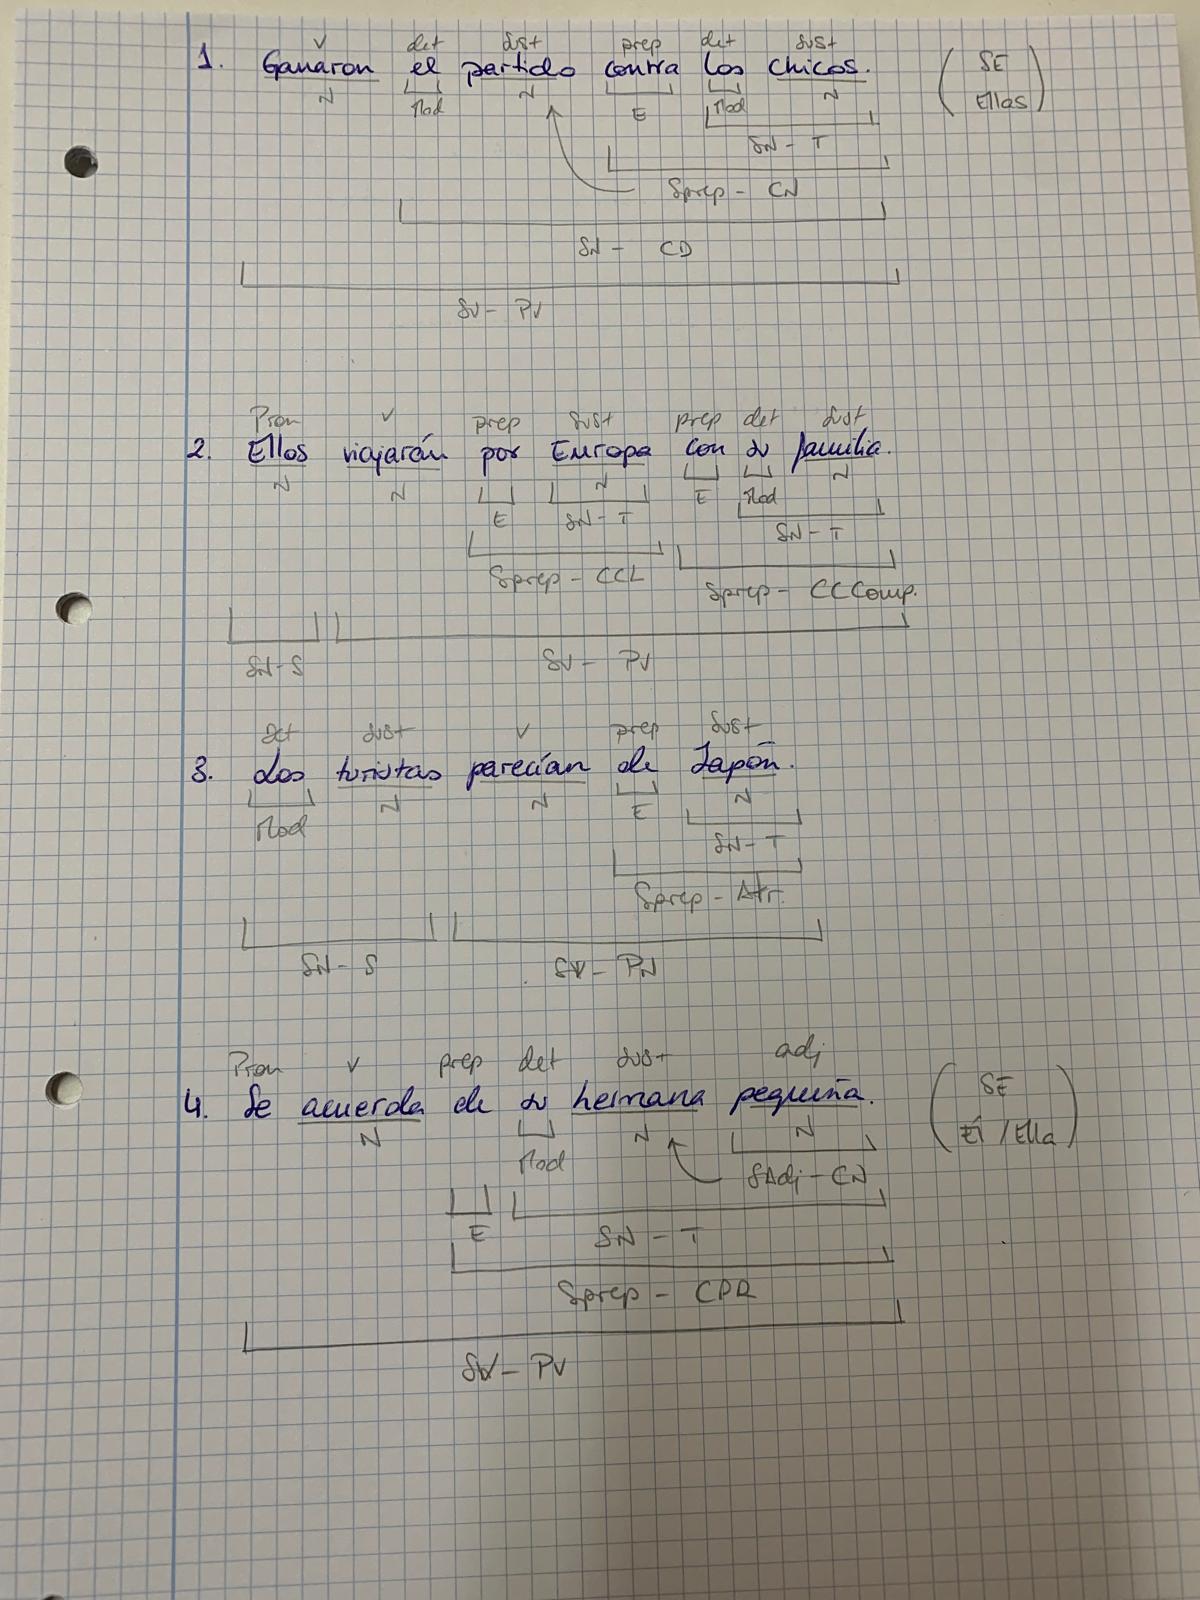 v det sust prep det sust
1. Ganaron el partido contra los chicos. (SE
N Mod N E Mod N Ellas)
SN - T
Sprep - CN
SN - CD
SV - PV
Pron v prep sust prep det sust
2. Ellos viajarán por Europa con su familia.
N N E N E Mod N
SN - T SN - T
Sprep - CCL Sprep - CCComp.
SN - S SV - PV
Det sust v prep sust
3. Los turistas parecían de Japón.
Mod N N E N
SN - T
Sprep - Atr.
SN - S SV - PN
Pron v prep det sust adj
4. Se acuerda de su hermana pequeña. (SE
N Mod N N Él / Ella)
SAdj - CN
E SN - T
Sprep - CPR
SV - PV